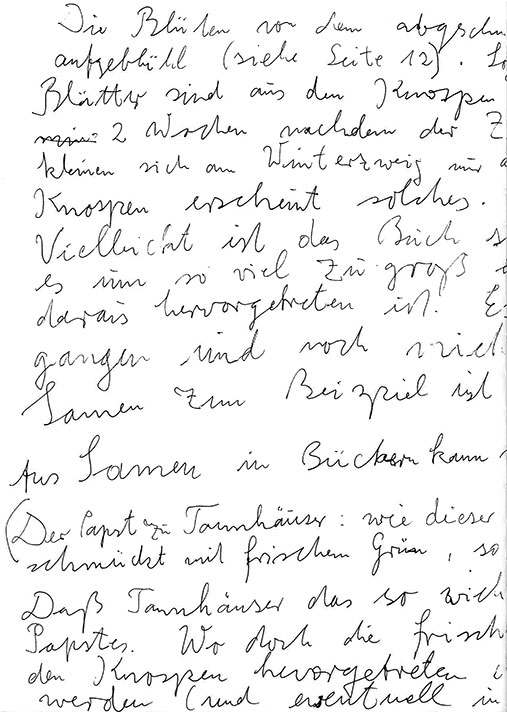 Die Blüten von dem abgeschn
aufgeblüht (siehe Seite 12). So
Blätter sind aus den Knospen
2 Wochen nachdem der Z
kleinen sich am Winterzweig nur a
Knospen erscheint solches.
Vielleicht ist das Buch s
es um so viel zu groß
daraus hervorgetreten ist. Es
gangen und noch nich
Samen zum Beispiel ist
Aus Samen in Büchern kann
(Der Papst zu Tannhäuser: wie dieser
schmückt mit frischem Grün, so
Daß Tannhäuser das so wich
Papstes. Wo doch die frisch
den Knospen hervorgetreten
werden (und eventuell in